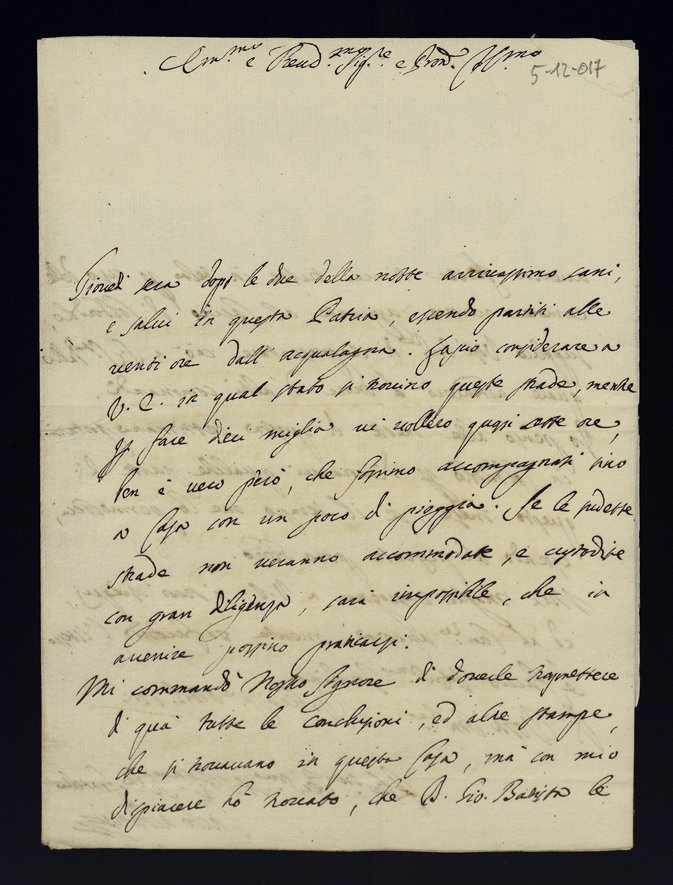 Em.mo e Reud.mo Sig.re e Pron. Col.mo
5-12-017
Giouedi sera dopo le due della notte arriuassimo sani,
e salui in questa Patria, essendo partiti alle
uenti ore dall' acqualagna. Lascio considerare a
V. E. in qual stato si trouino queste strade, mentre
p fare dieci miglia ui uollero quasi otto ore,
ben è uero però, che fossimo accompagnati sino
a Casa con un poco di pioggia. Se le sudette
strade non ueranno accommodate, e custodite
con gran diligenza, sarà impossibile, che in
auenire possino praticarsi.
Mi commandò Nostro Signore di douerle trasmettere
di quà tutte le Conclusioni, ed altre stampe,
che si trouauano in questa Casa, mà con mio
dispiacere hò trouato, che D. Gio. Battista le